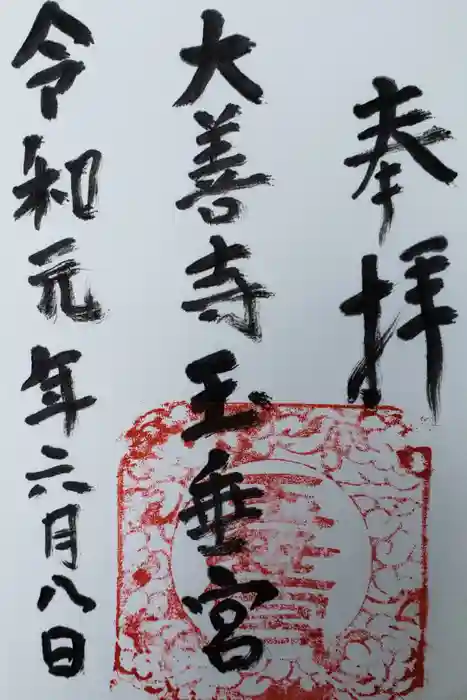 奉拝
大善寺玉垂宮
令和元年六月八日